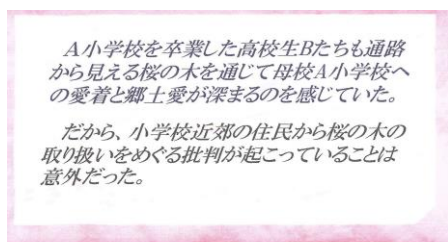 A小学校を卒業した高校生Bたちも通路
から見える桜の木を通じて母校A小学校へ
の愛着と郷土愛が深まるのを感じていた。
だから、小学校近郊の住民から桜の木の
取り扱いをめぐる批判が起こっていることは
意外だった。